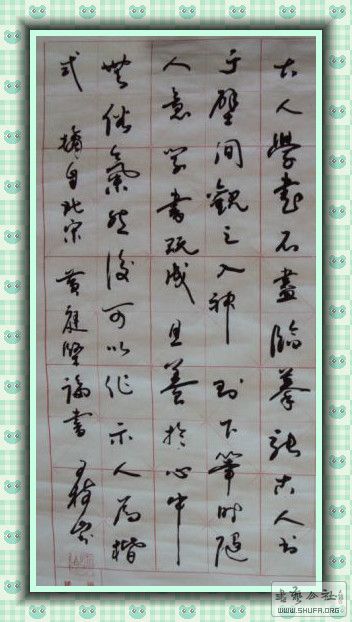 古人學書不盡臨摹張古人书
于壁间觀之入神則下筆时隨
人意學書既成且養於心中
無俗氣然後可以作示人為楷
式 摘自北宋黄庭堅論書
书艺公社
WWW.SHUFA.ORG